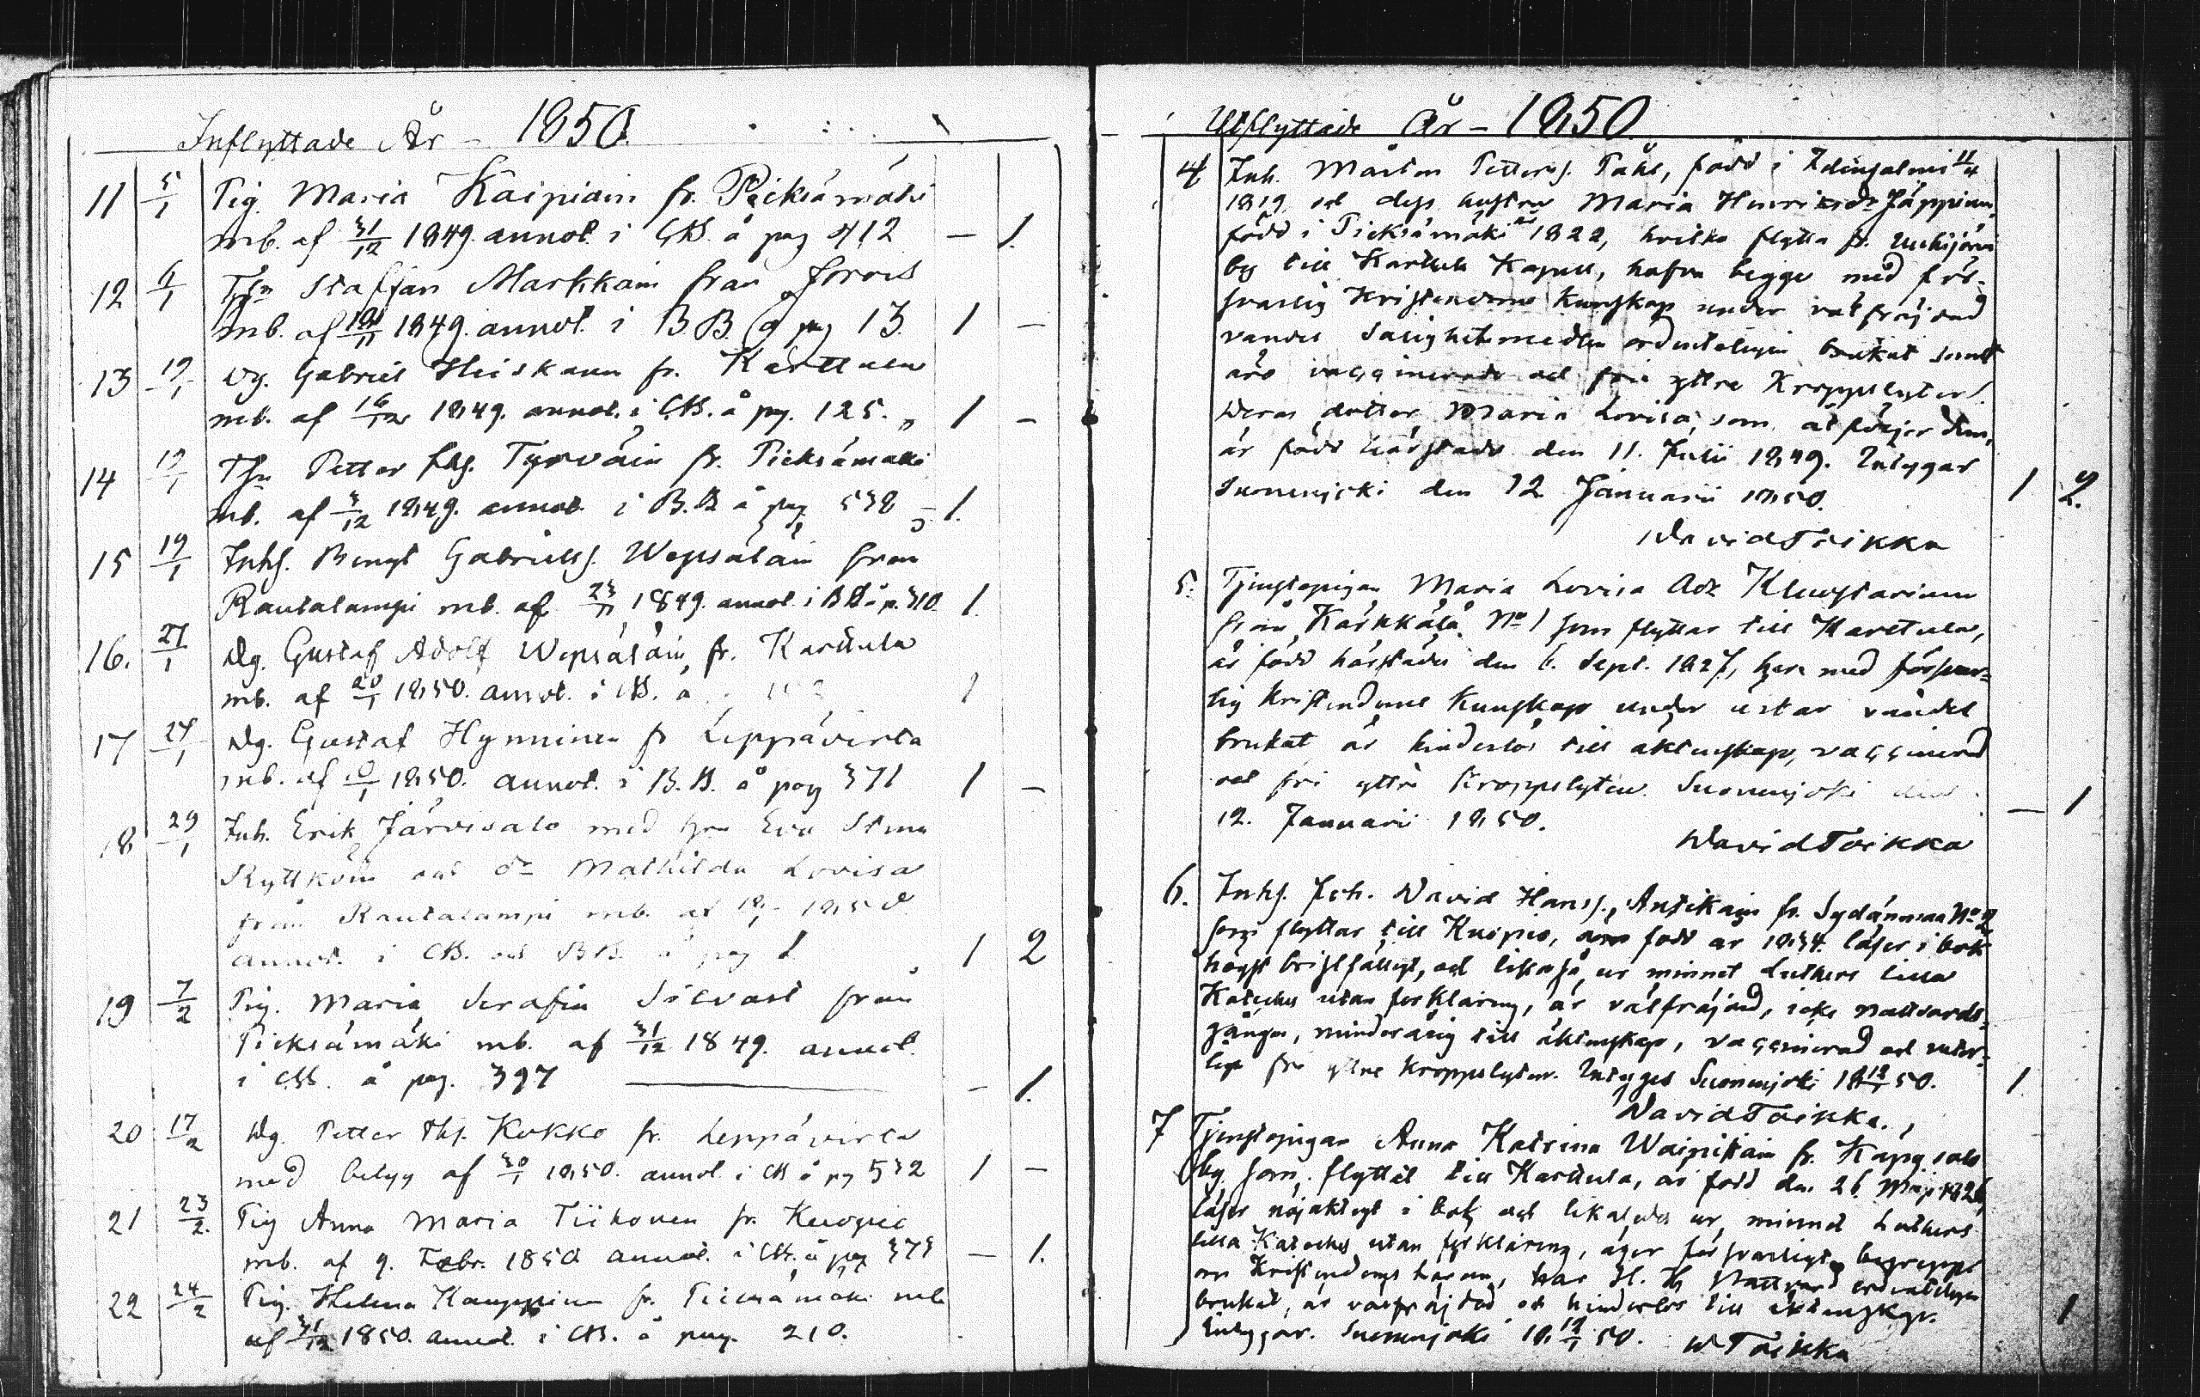 Inflyttade År - 1850.
11 5/1 Pig. Maria Kaipiain fr. Pieksämäki
mb. af 31/12 1849. annot. i CB. å pag 412 — 1.
12 6/1 Staffan Markkain från
mb. af 1849. annot. i B.B. å pag 13. 1 —
13 19/1 Dg. Gabriel Heiskanen fr. Karttula
mb. af 16/12 1849. annot. i CB. å pg. 125. " 1 —
14 19/1 Petter Tyrväin fr. Pieksämäki
mb. af 3/12 1849. annot. i B.B å pag 538 — 1.
15 19/1 Inhs. Bengt Gabrielss. Wepsäläin från
Rautalampi mb. af 23/11 1849. annot. i BB å p. 310. 1.
16. 27/1 Dg. Gustaf Adolf Wepsäläin fr. Karttula
mb. af 20/1 1850. annot. i CB. å 1
17 27/1 Dg. Gustaf Hynninen fr Leppävirta
mb. af 10/1 1850. annot. i B.B. å pag 371 1 —
18 29/1 Inh. Erik Järvisalo med hru Eva Stina
Ryttköin och dr Mathilda Lovisa
från Rautalampi mb. af 1850
annot. i CB. och BB. å pag 1 2
19 7/2 Pig. Maria Serafia från
Pieksämäki mb. af 31/12 1849. annot.
i CB. å pag. 397 — 1.
20 17/2 Dg. Petter Kokko fr. Leppävirta
med betyg af 30/1 1850. annot. i CB å pg 532 1 —
21 23/2. Pig Anna Maria Tiihonen fr. Kuopio
mb. af 9. Febr. 1850 annot. i CB. å pag 373 — 1.
22 24/2 Pig. Helena Kauppinen fr. Pieksämäki mb
af 1850. annot. i CB. å pag. 210.
Utflyttade År - 1850
4 Inh. Mårten Petterss. född i Idensalmi 11/4
1819, och dess hustru Maria Henriksdr Jäppinen,
född i Pieksämäki år 1822, hvilka flytta fr.
by till Karttula Kapell, hafva begge med för-
svarlig Kristendoms Kunskap under välfräjdad
vandel Salighetsmedlen ordenteligen brukat samt
äro vaccinerade och fria yttre Kroppslyten.
Deras dotter Maria Lovisa, som åtföljer dem,
är född härstädes den 11. Julii 1849. Intygar
Suonenjoki den 12 Januarii 1850. 1 2.
David Toikka
5. Tjenstepigan Maria Lovisa Adr
från Kärkkälä No 1 som flyttar till Karttula,
är född härstädes den 6. Sept. 1827, har med försvar-
lig Kristendoms Kunskap under vandel
brukat är hinderlös till äktenskap, vaccinerad
och fri yttre Kroppslyten. Suonenjoki den
12. Januarii 1850. — 1
David Toikka
6. Inhs. Joh. David Hanss. fr. Sydänmaa No 2
som flyttar till Kuopio, född år 1834. läser i bok
högst bristfälligt, och likaså ur minnet Luthers lilla
Kateches utan förklaring, är välfräjdad, icke nattvards-
gången, minderårig till äktenskap, vaccinerad och
fri yttre Kroppslyten. Intygas Suonenjoki 18 12/1 50. 1
David Toikka.
7 Tjenstepigan Anna Katrina fr.
by som flyttat till Karttula, är född den 26 Maji 1826,
läser nöjaktigt i bok och likaledes ur minnet Luthers
lilla Kateches utan förklaring, äger försvarligt begrepp
om Kristendoms läran, har H. H. Nattvard ordenteligen
brukat, är välfräjdad och hinderlös till äktenskap.
Intygar. Suonenjoki 18 12/1 50. 1
D Toikka